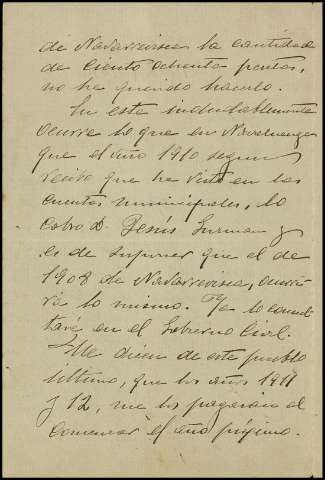 de Navarrevisca la cantidad
de ciento ochenta pesetas,
no ha querido hacerlo.
En esta indudablemente
ocurre lo que en Navaluenga
que el año 1910 segun
recibo que he visto en las
cuentas municipales, lo
cobro D. Jesús Guzman y
es de suponer que el de
1908 de Navarrevisca, ocurri
ria lo mismo. Ya lo consul
taré en el Gobierno Civil.
Me dicen de este pueblo
ultimo, que los años 1911
y 12, me los pagarian al
comenzar el año próximo.